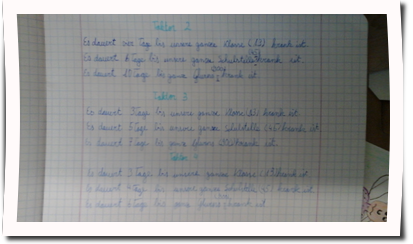 Faktor 2
Es dauert vier Tage bis unsere ganze Klasse (12) krank ist.
Es dauert 6 Tage bis unsere ganze Schulstelle krank ist.
Es dauert 10 Tage bis ganz krank ist.
Faktor 3
Es dauert 3 Tage bis unsere ganze Klasse krank ist.
Es dauert 5 Tage bis unsere ganze Schulstelle krank ist
Es dauert 7 Tage bis ganz krank ist.
Faktor
Es dauert 3 Tage bis unsere ganze Klasse krank ist.
Es dauert 4 Tage bis unsere ganze Schulstelle krank ist.
Es dauert 6 Tage bis ganz krank ist.